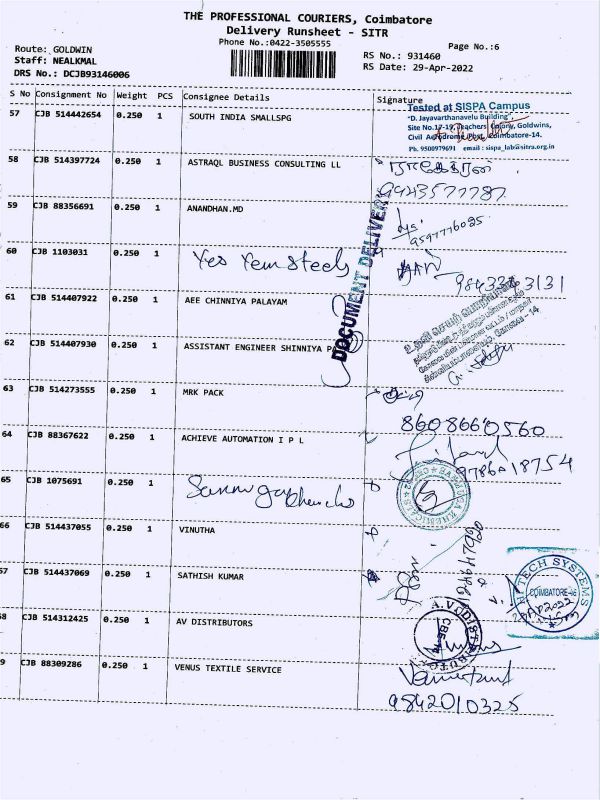 THE PROFESSIONAL COURIERS, Coimbatore
Delivery Runsheet - SITR
Phone No.:0422-3505555
Page No.:6
Route: GOLDWIN
Staff: NEALKMAL
DRS No.: DCJB93146006
RS No.: 931460
RS Date: 29-Apr-2022
S No Consignment No Weight PCS Consignee Details Signature
Tested at SISPA Campus
"D. Jayavarthanavelu Building",
Site No.17-19, Teachers Colony, Goldwins,
Civil Aerodrome Post, Coimbatore-14.
Ph. 9500979691 email : sispa_lab@sitra.org.in
57 CJB 514442654 0.250 1 SOUTH INDIA SMALLSPG
58 CJB 514397724 0.250 1 ASTRAQL BUSINESS CONSULTING LL
9943577787
59 CJB 88356691 0.250 1 ANANDHAN.MD
9597776025
60 CJB 1103031 0.250 1 Yes Yem Steels
DOCUMENT DELIVERY
61 CJB 514407922 0.250 1 AEE CHINNIYA PALAYAM
62 CJB 514407930 0.250 1 ASSISTANT ENGINEER SHINNIYA PA
63 CJB 514273555 0.250 1 MRK PACK
8608660560
64 CJB 88367622 0.250 1 ACHIEVE AUTOMATION I P L
9786018754
65 CJB 1075691 0.250 1
66 CJB 514437055 0.250 1 VINUTHA
67 CJB 514437069 0.250 1 SATHISH KUMAR
HI TECH SYSTEMS
COIMBATORE
68 CJB 514312425 0.250 1 AV DISTRIBUTORS
A.V. DISTRIBUTORS
CBE
69 CJB 88309286 0.250 1 VENUS TEXTILE SERVICE
9842010325